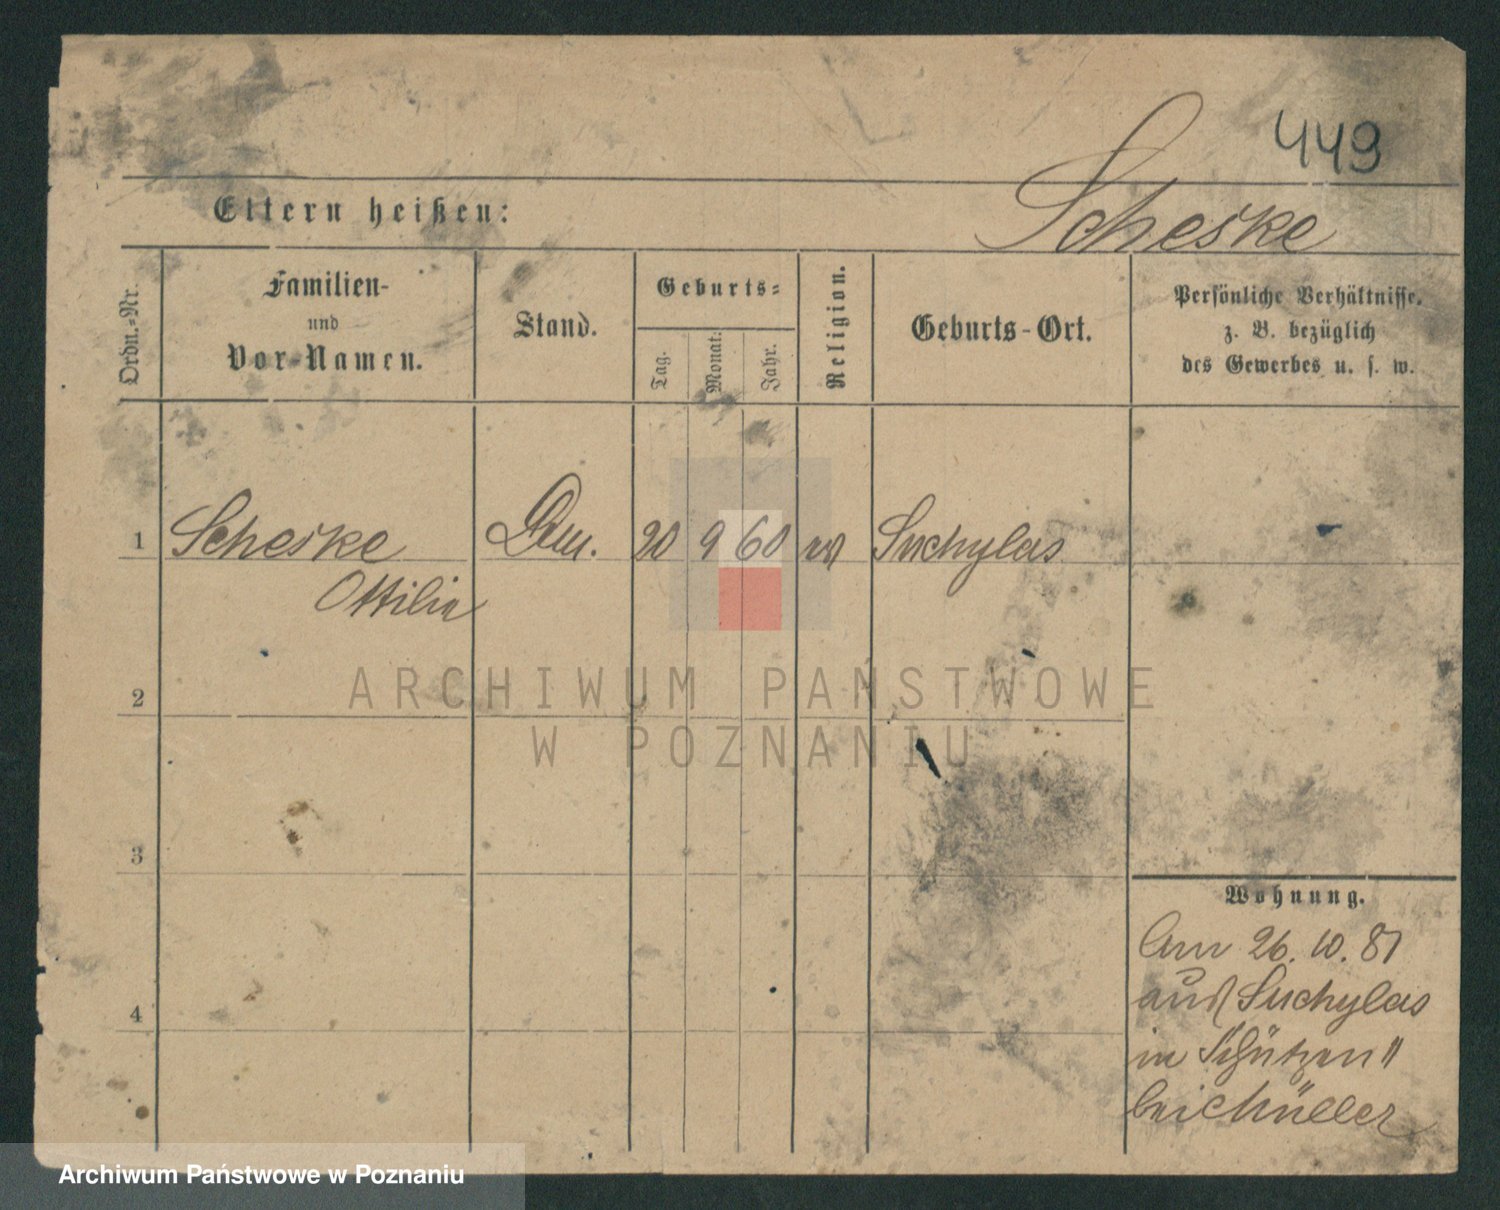 449
Scheske
Eltern heißen:
Ordn.-Nr.
Familien-
und
Vor-Namen.
Stand.
Geburts-
Tag.
Monat.
Jahr.
Religion.
Geburts-Ort.
Persönliche Verhältnisse.
z. B. bezüglich
des Gewerbes u. s. w.
1 Scheske 20 9 60 Suchylas
Ottilie
2
ARCHIWUM PAŃSTWOWE
W POZNANIU
3
Wohnung.
Am 26. 10. 81
aus Suchylas
in Schützen 11
bei Müller
4
Archiwum Państwowe w Poznaniu